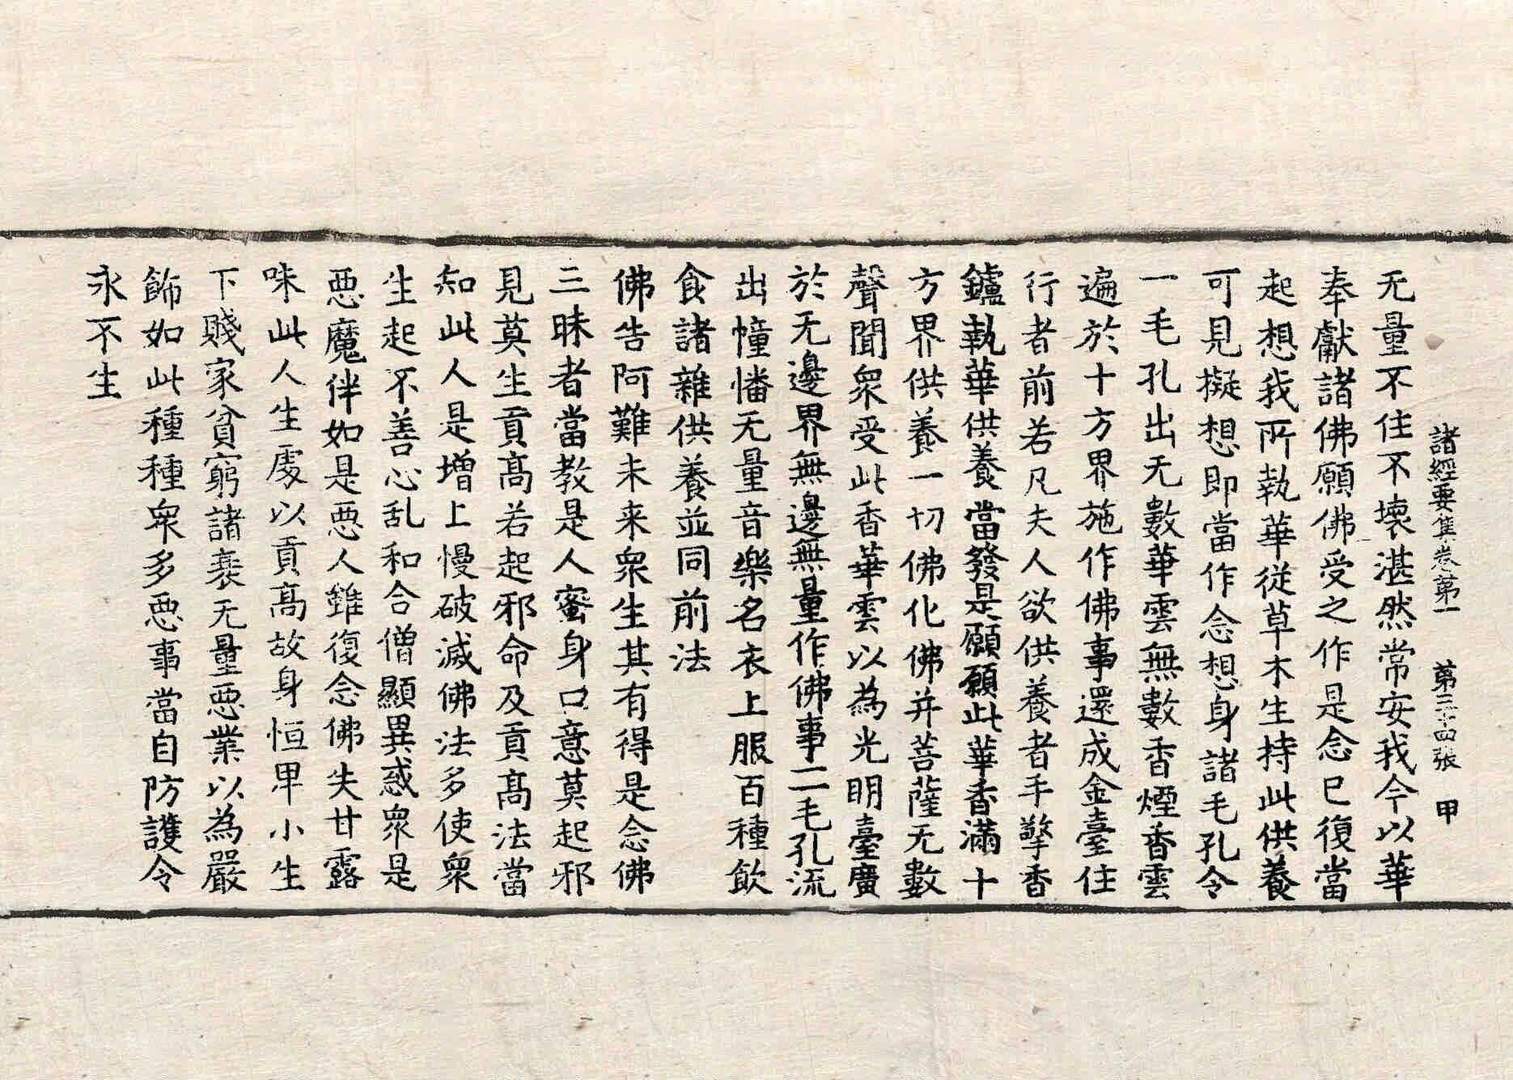 諸經要集卷第一 第三十四張 甲
无量不住不壞湛然常安我今以華
奉獻諸佛願佛受之作是念已復當
起想我所執華從草木生持此供養
可見擬想即當作念想身諸毛孔令
一毛孔出无數華雲無數香煙香雲
遍於十方界施作佛事還成金臺住
行者前若凡夫人欲供養者手擎香
鑪執華供養當發是願願此華香滿十
方界供養一切佛化佛并菩薩无數
聲聞衆受此香華雲以為光明臺廣
於无邊界無邊無量作佛事二毛孔流
出幢幡无量音樂名衣上服百種飲
食諸雜供養並同前法
佛告阿難未来衆生其有得是念佛
三昧者當教是人蜜身口意莫起邪
見莫生貢髙若起邪命及貢髙法當
知此人是增上慢破滅佛法多使衆
生起不善心乱和合僧顯異惑衆是
惡魔伴如是惡人雖復念佛失甘露
味此人生處以貢髙故身恒卑小生
下賤家貧窮諸衰无量惡業以為嚴
飾如此種種衆多惡事當自防護令
永不生